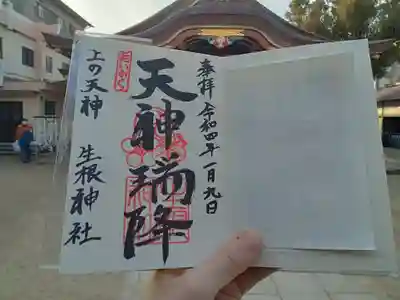 奉拝 令和四年一月九日
天神瑞降
上の天神 生根神社